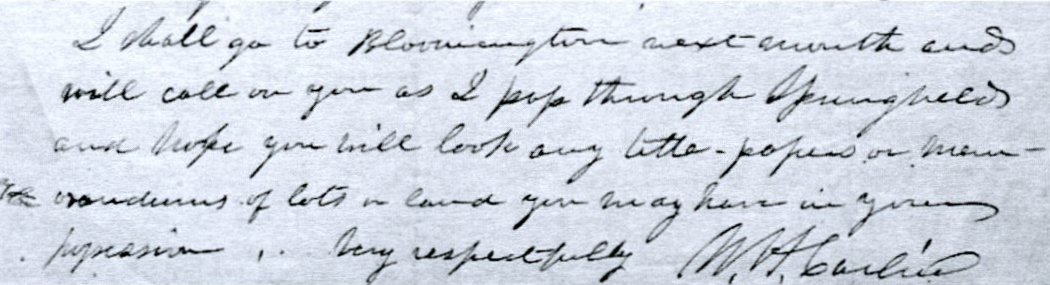 I shall go to Bloomington next month and
will call on you as I pass through Springfield
and hope you will look any title-papers or mem-
orandums of lots or land you may have in your
possession .. Very respectfully W. H. Carlin